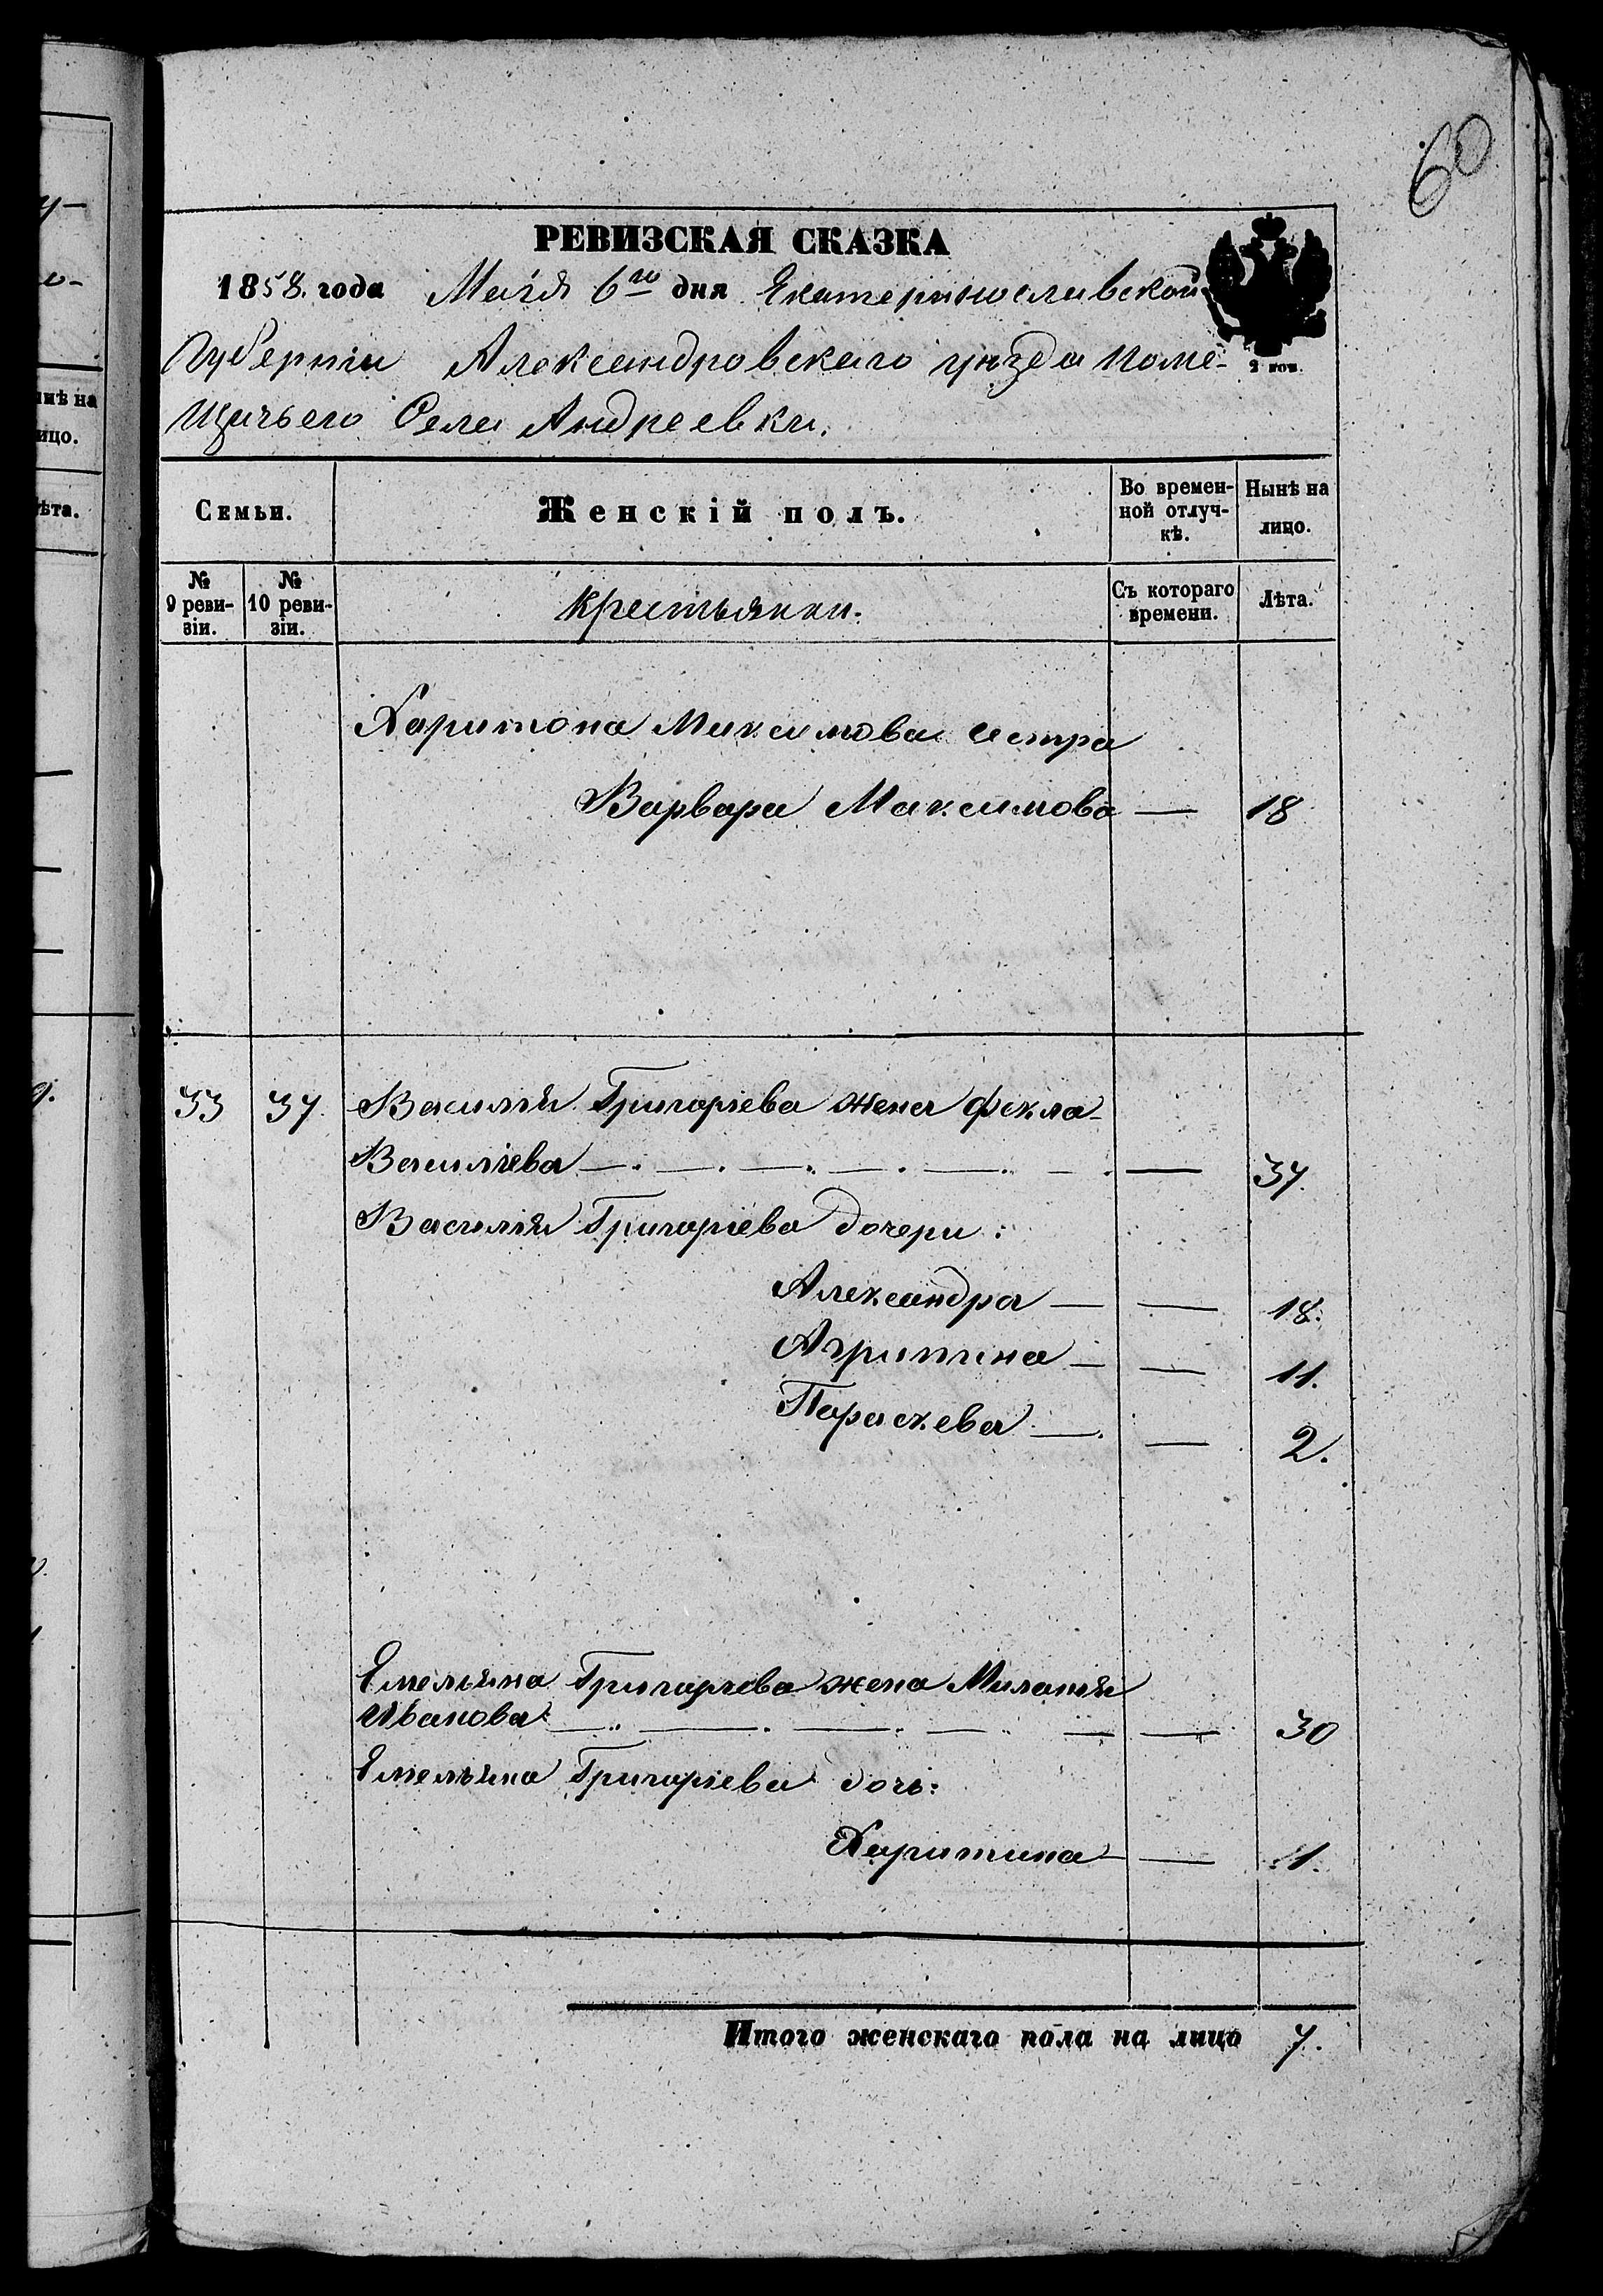 60
РЕВИЗСКАЯ СКАЗКА
1858. года Маія 6го дня Екатеринославской
Губерніи Александровскаго уѣзда Поме-
щичьего Села Андреевки.
2 коп.
Семьи.
Женскій полъ.
Во времен-
ной отлуч-
кѣ.
Нынѣ на
лицо.
№
9 реви-
зіи.
№
10 реви-
зіи.
Крестьянки.
Съ котораго
времени.
Лѣта.
Харитона Максимова сестра
Варвара Максимова — 18
33 37. Василія Григорієва жена Фекла
Василіева — — 37.
Василія Григорієва дочери:
Александра — — 18.
Агрипина — — 11.
Параскева — — 2.
Емельяна Григорієва жена Миланія
Иванова — — 30
Емельяна Григорієва дочь:
Харитина — — 1.
Итого женскаго пола на лицо 7.
инѣ на
ицо.
ѣта.